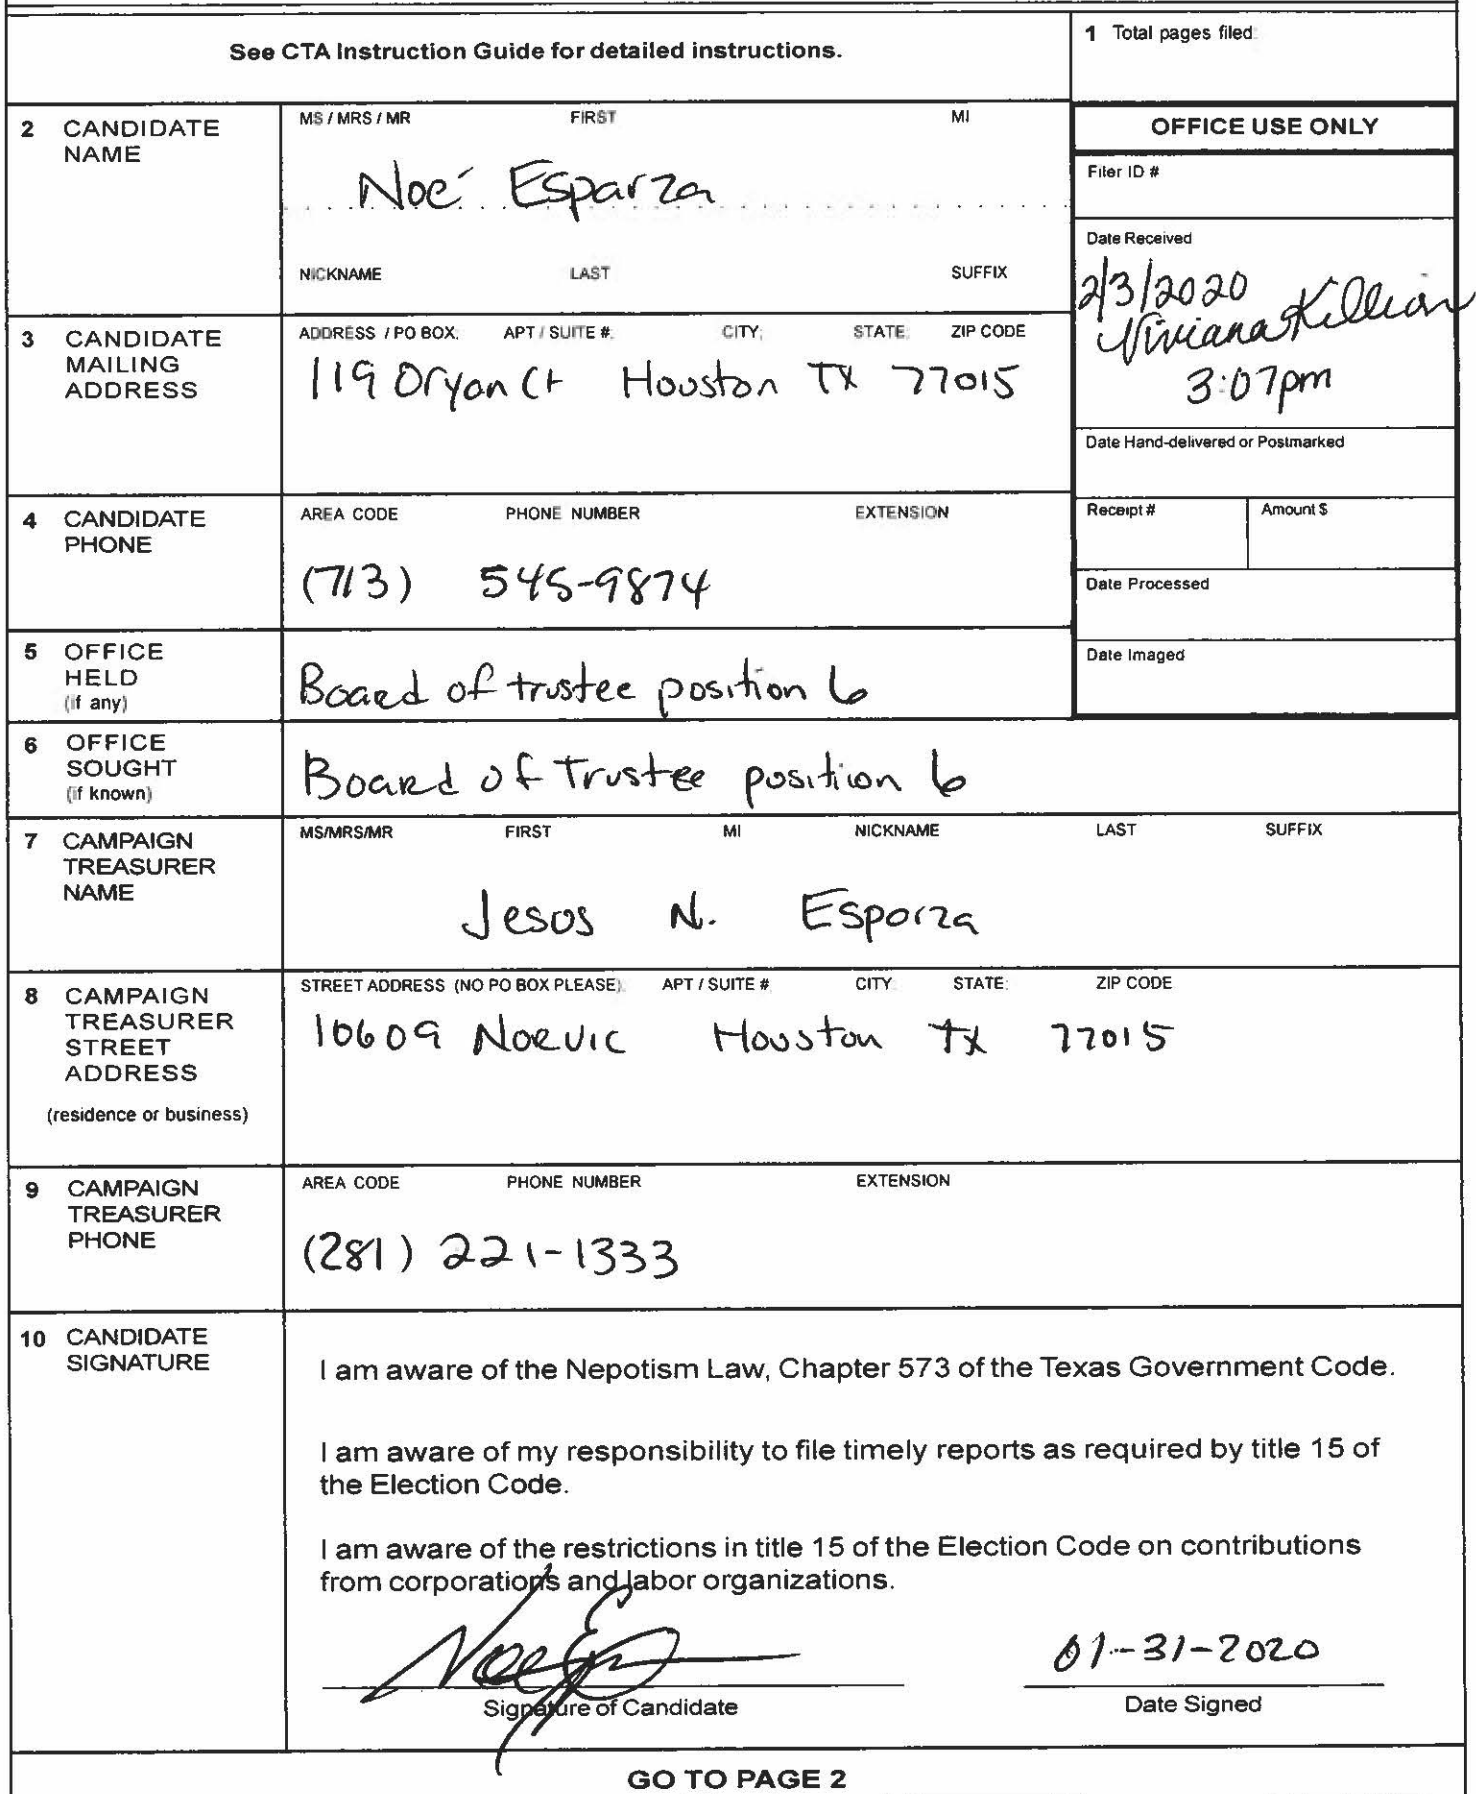 See CTA Instruction Guide for detailed instructions.
1 Total pages filed:
2 CANDIDATE NAME
MS / MRS / MR FIRST MI
Noé Esparza
NICKNAME LAST SUFFIX
OFFICE USE ONLY
Filer ID #
Date Received
2/3/2020
Viviana Killian
3:07pm
3 CANDIDATE MAILING ADDRESS
ADDRESS / PO BOX; APT / SUITE #; CITY; STATE; ZIP CODE
119 Oryan Ct Houston TX 77015
Date Hand-delivered or Postmarked
4 CANDIDATE PHONE
AREA CODE PHONE NUMBER EXTENSION
(713) 545-9874
Receipt # Amount $
Date Processed
5 OFFICE HELD (if any)
Board of trustee position 6
Date Imaged
6 OFFICE SOUGHT (if known)
Board of Trustee position 6
7 CAMPAIGN TREASURER NAME
MS/MRS/MR FIRST MI NICKNAME LAST SUFFIX
Jesus N. Esparza
8 CAMPAIGN TREASURER STREET ADDRESS
(residence or business)
STREET ADDRESS (NO PO BOX PLEASE); APT / SUITE #; CITY; STATE; ZIP CODE
10609 Norvic Houston TX 77015
9 CAMPAIGN TREASURER PHONE
AREA CODE PHONE NUMBER EXTENSION
(281) 221-1333
10 CANDIDATE SIGNATURE
I am aware of the Nepotism Law, Chapter 573 of the Texas Government Code.
I am aware of my responsibility to file timely reports as required by title 15 of
the Election Code.
I am aware of the restrictions in title 15 of the Election Code on contributions
from corporations and labor organizations.
01-31-2020
Signature of Candidate Date Signed
GO TO PAGE 2